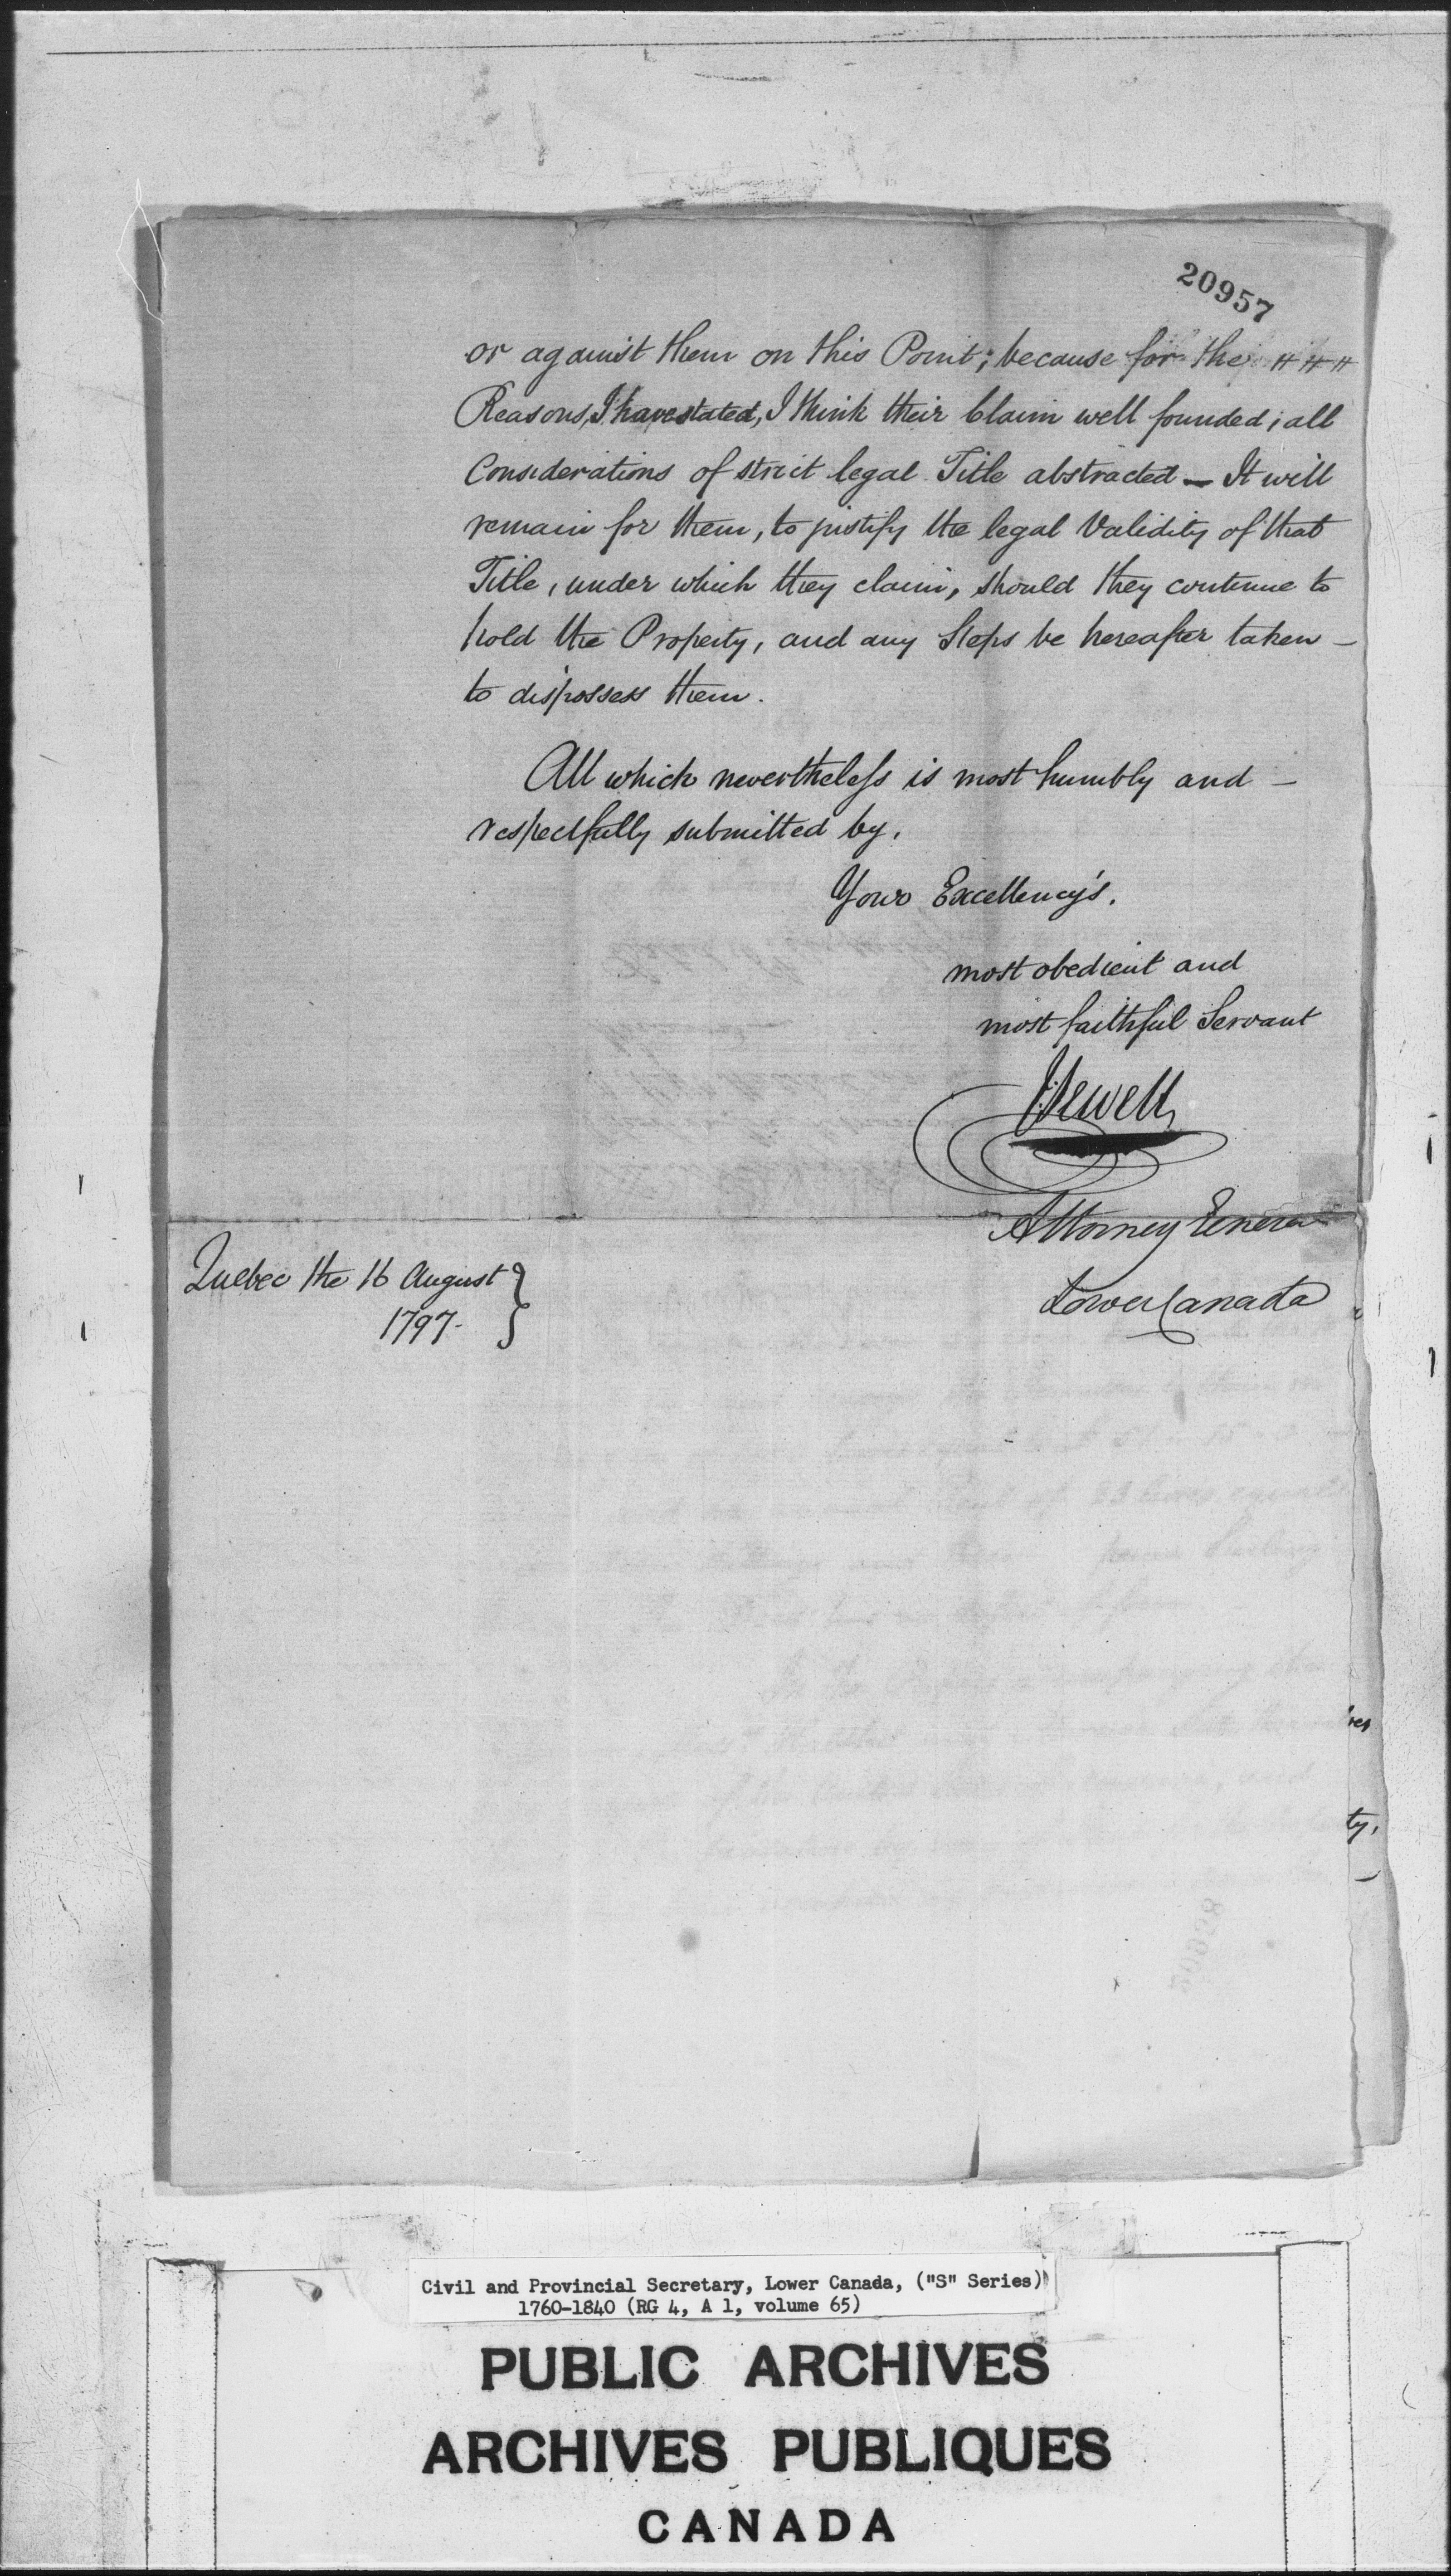 20957
or against them on this Point; because for the
Reasons, I have stated, I think their Claim well founded; all
Considerations of strict legal Title abstracted — It will
remain for them, to justify the legal Validity of that
Title, under which they claim, should they continue to
hold the Property, and any Steps be hereafter taken —
to dispossess them.
All which nevertheless is most humbly and —
respectfully submitted by,
Your Excellency's,
most obedient and
most faithful Servant
J: Sewell,
Attorney General
Lower Canada
Quebec the 16 August
1797.
ty,
Civil and Provincial Secretary, Lower Canada, ("S" Series)
1760-1840 (RG 4, A 1, volume 65)
PUBLIC ARCHIVES
ARCHIVES PUBLIQUES
CANADA